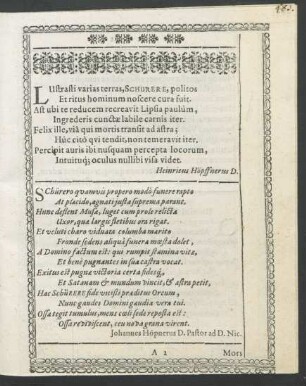 LUstrasti varias terras, SCHURERE, politos
Et ritus hominum noscere cura fuit.
Ast ubi te reducem recreavit Lipsia paulùm,
Ingrederis cunctæ labile carnis iter.
Felix ille, viâ qui mortis transit ad astra;
Hûc citò qvi tendit, non temeravit iter,
Percipit auris ibi nusquam percepta locorum,
Intuituq; oculus nullibi visa videt.
Heinricus Höpffnerus D.
SChürero qvamvis propero modò funere rapto
At placido, agnati justa suprema parant.
Hunc deflent Musæ, luget cum prole relicta
Uxor, qvæ largis fletibus ora rigat.
Et veluti charo viduata columba marito
Fronde sedens aliqvâ funera mœsta dolet,
A Domino factum est: qui rumpit stamina vitæ,
Et benè pugnantes in sua castra vocat.
Exitus est pugnæ victoria certa fideiq;,
Et Satanam & mundum vincit, & astra petit,
Hac SchüRERE fide vicisti prædite Orcum,
Nunc gaudes Domini gaudia vera tui.
Ossa tegit tumulus, mens cœli sede reposta est:
Ossa reviviscent, ceu nova grana virent.
Johannes Höpnerus D. Pastor ad D. Nic.
A 2
Mors